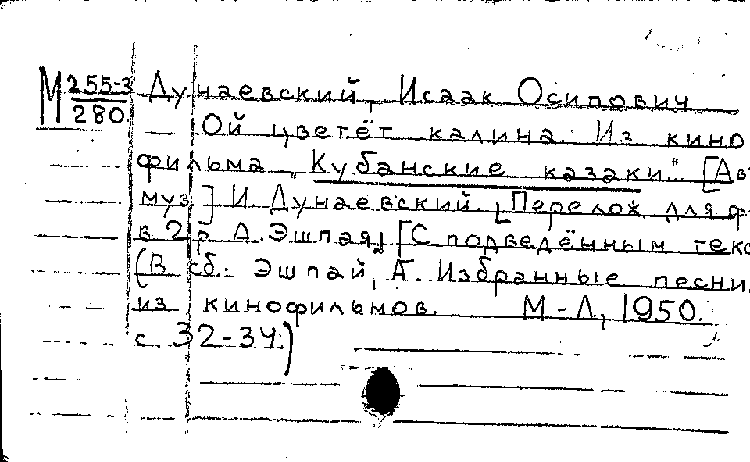 М 255-3 Дунаевский, Исаак Осипович
280 Ой цветёт калина. Из кино
фильма „Кубанские казаки". [Ав
муз] И Дунаевский. [Перелож. для ф
в 2 р А. Эшпая] [С подведённым текс
(В сб.: Эшпай, А. Избранные песни
из кинофильмов. М-Л, 1950.
с. 32-34.)